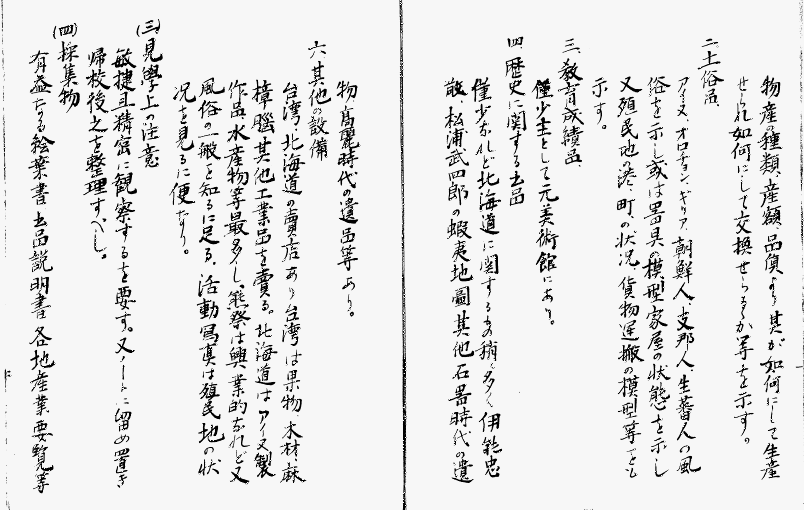 物産の種類、産額、品質より其が如何にして生産
せられ如何にして交換せらるゝか等を示す。
二、土俗品、
アイヌ、オロチョン、ギリヤ、朝鮮人、支那人、生蕃人の風
俗を示し或は器具の模型家屋の状態を示し
又殖民地の港、町、の状況、貨物運搬の模型等をも
示す。
三、教育成績品、
僅少主として元美術館にあり。
四、歴史に関する出品
僅少なれど北海道に関するもの稍々多く伊能忠
敬、松浦武四郎の蝦夷地圖其他石器時代の遺
物、高麗時代の遺品等あり。
六、其他の設備
台湾、北海道の賣店あり台湾は果物、木材、麻
樟腦、其他工業品を賣る。北海道はアイヌ製
作品、水産物等最多し、熊祭は興業的なれど又
風俗の一般を知るに足る、活動寫真は殖民地の状
況を見るに便なり。
(三)見學上の注意
敏捷且精密に観察するを要す。又ノートに留め置き
帰校後之を整理すべし。
(四)採集物
有益なる絵葉書出品説明書各地産業要覧等